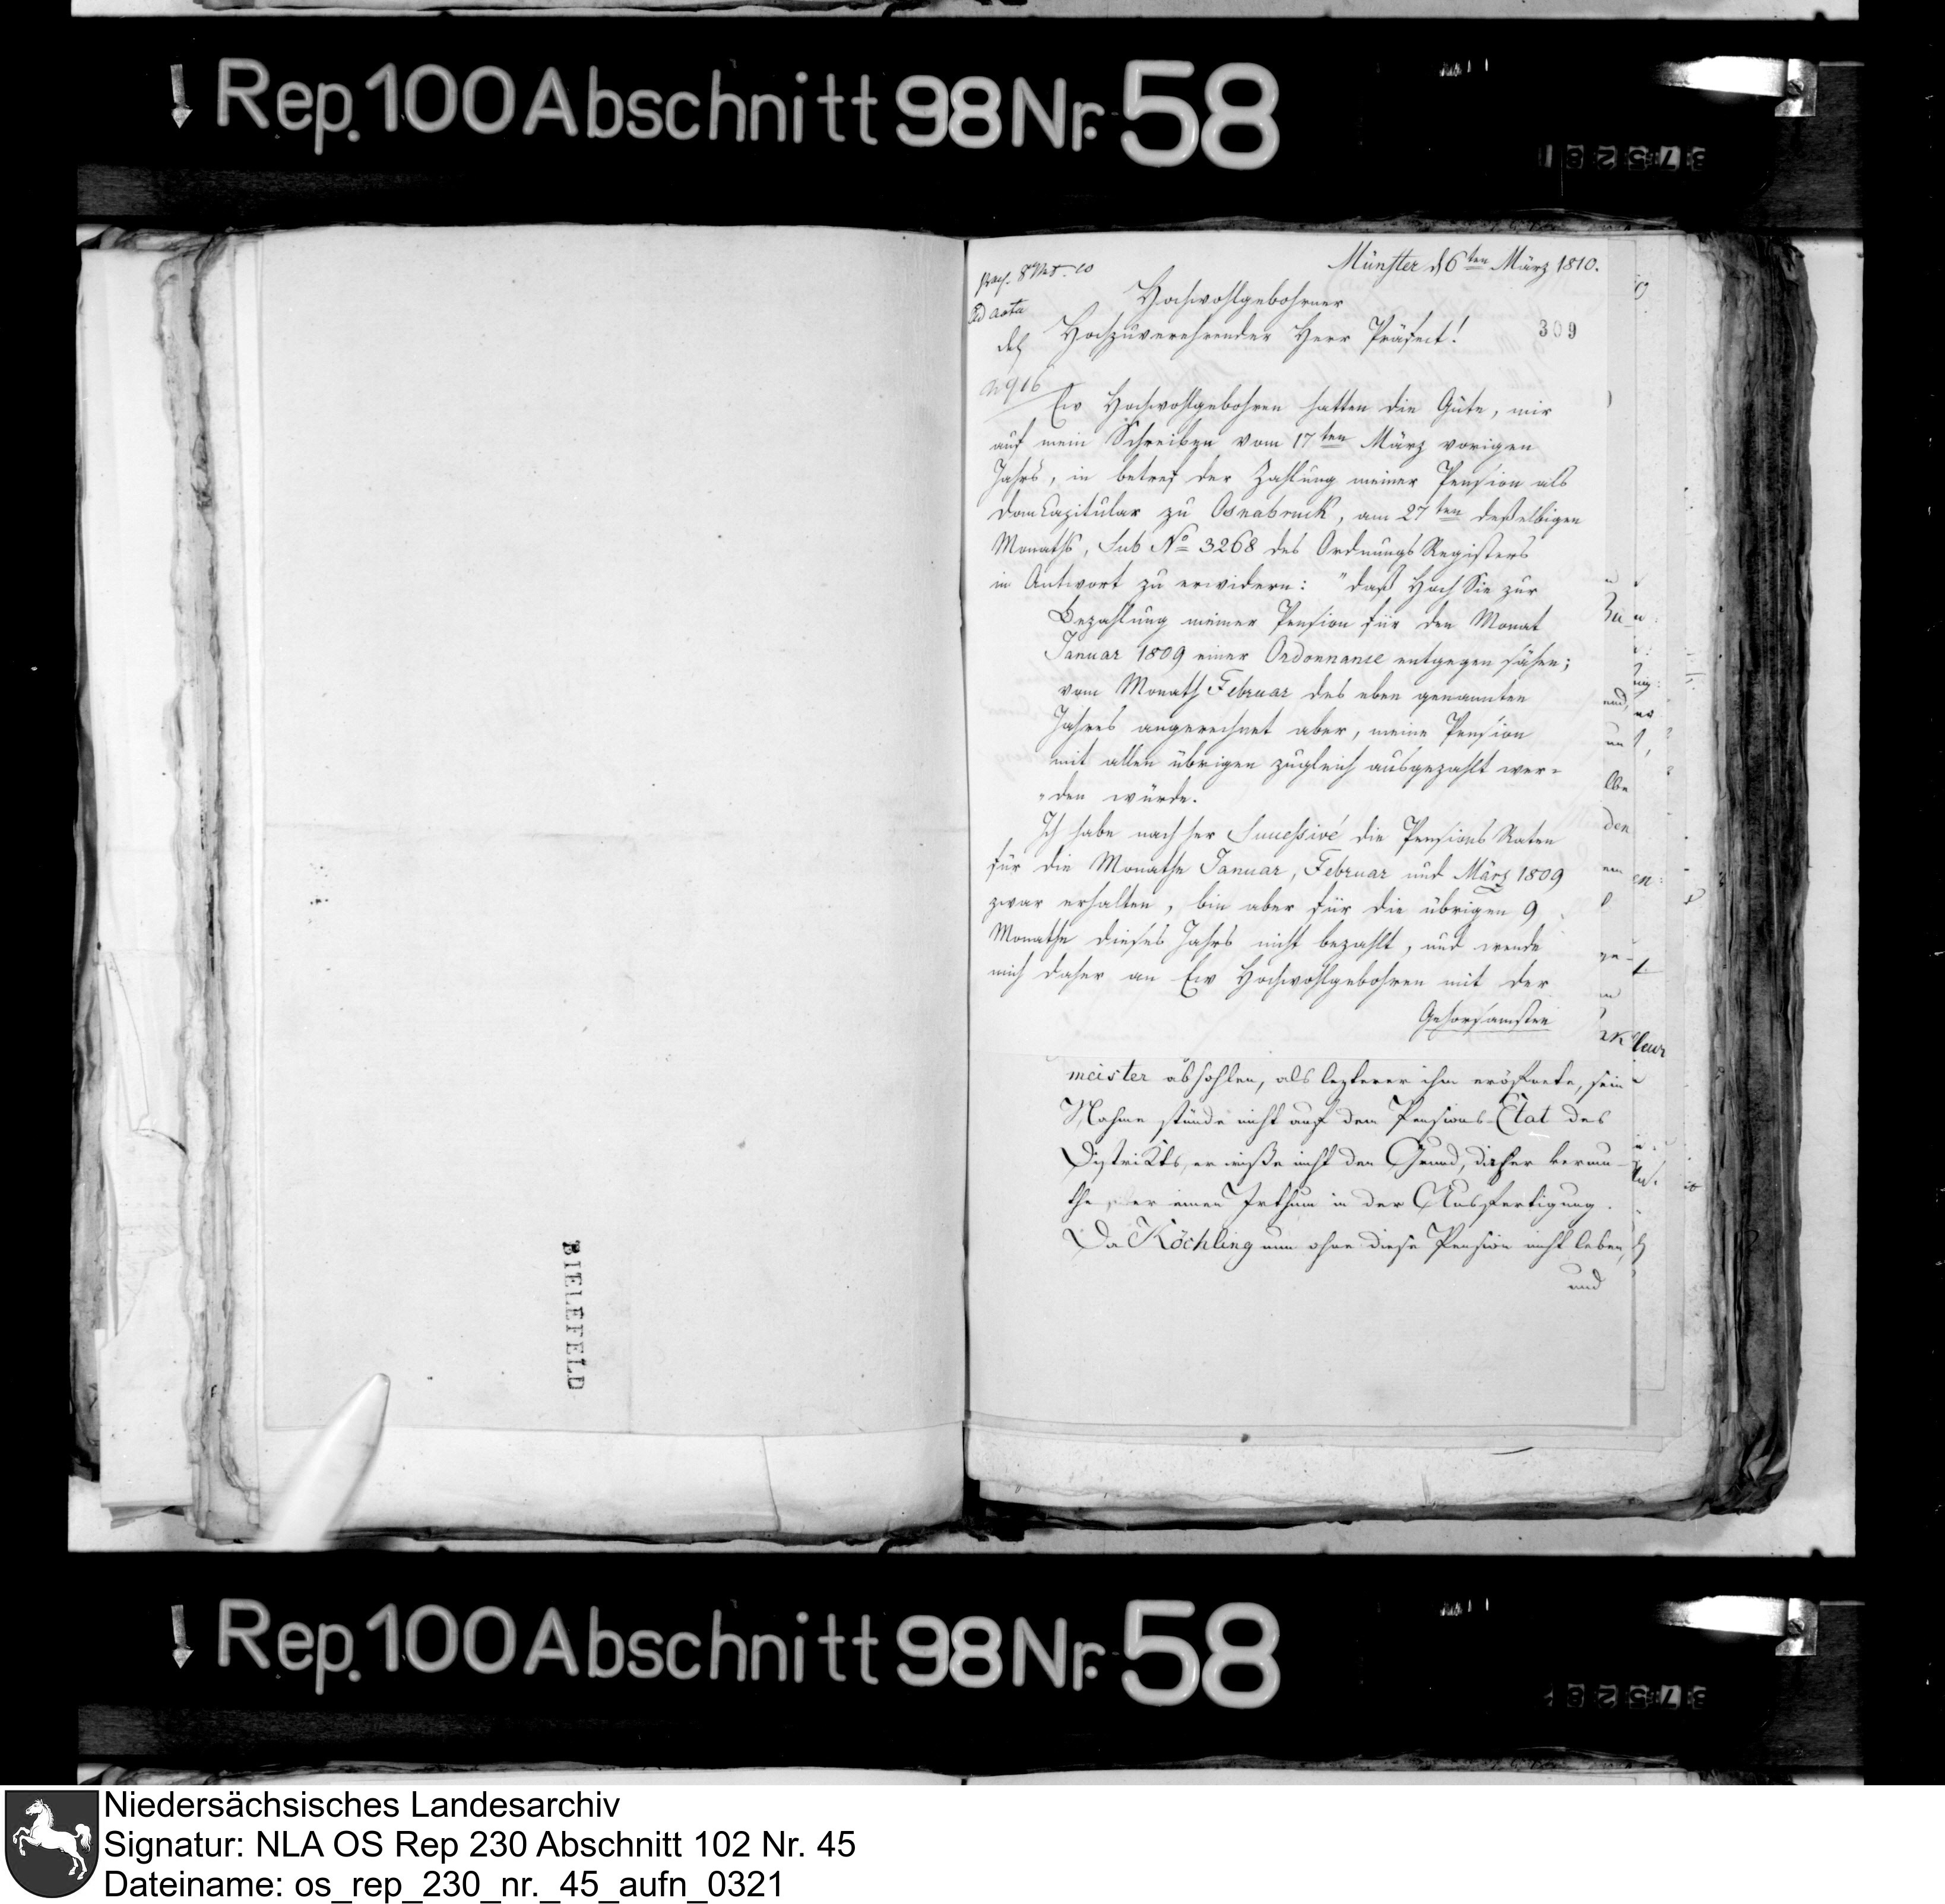 Rep. 100 Abschnitt 98 Nr. 58
BIELEFELD
Münster d 6ten März 1810.
Ad acta
Hochwohlgebohrner
Hochzuverehrender Herr Präfect!
309
Ew Hochwohlgebohren hatten die Güte, mir
auf mein Schreiben vom 17ten März vorigen
Jahrs, in betref der Zahlung meiner Pension als
DomCapitular zu Osnabruck, am 27ten deßelbigen
Monaths, sub No 3268 des OrdnungsRegisters
in Antwort zu erwidern: "daß Hoch Sie zur
Bezahlung meiner Pension für den Monat
Januar 1809 einer Ordonnance entgegen sähen;
vom Monath Februar des eben genannten
Jahres angerechnet aber, meine Pension
mit allen übrigen zugleich ausgezahlt wer=
"den würde.
Ich habe nachher Successivé die Pensions Raten
für die Monathe Januar, Februar und März 1809
zwar erhalten, bin aber für die übrigen 9
Monathe dieses Jahrs nicht bezahlt, und wende
mich daher an Ew Hochwohlgebohren mit der
Gehorsamsten
meister abhohlen, als lezterer ihm eröfnete, sein
Nahme stünde nicht auf dem Pensions-Etat des
Distrikts, er wiße nicht den Grund, dieser vermu-
the, er einen Irthum in der Ausfertigung.
Da Köchling nun ohne diese Pension nicht leben,
und
Rep. 100 Abschnitt 98 Nr. 58
Niedersächsisches Landesarchiv
Signatur: NLA OS Rep 230 Abschnitt 102 Nr. 45
Dateiname: os_rep_230_nr._45_aufn_0321